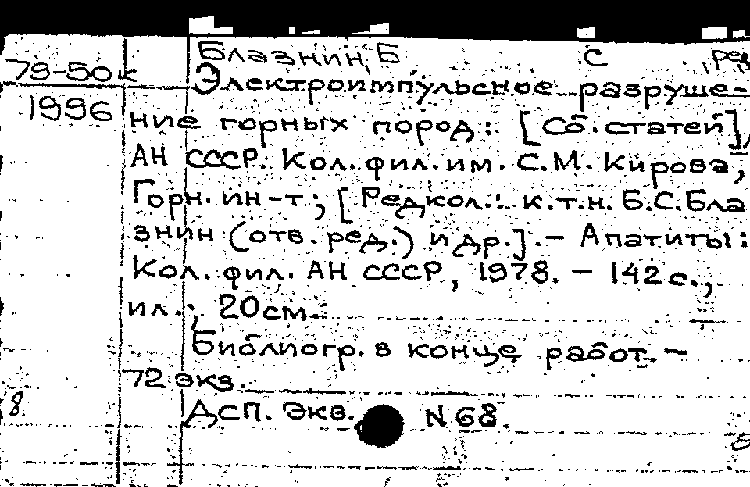 Блазнин Б С ред
79-50к Электроимпульсное разруше-
1996 ние горных пород: [Сб. статей],
АН СССР. Кол. фил. им. С.М. Кирова,
Горн. ин-т; [Редкол.: к.т.н. Б.С. Бла
знин (отв. ред.) и др.]. - Апатиты:
Кол. фил. АН СССР, 1978. - 142 с.,
ил.; 20см.
Библиогр. в конце работ. -
72 экз.
8 ДСП. Экз. N 68.